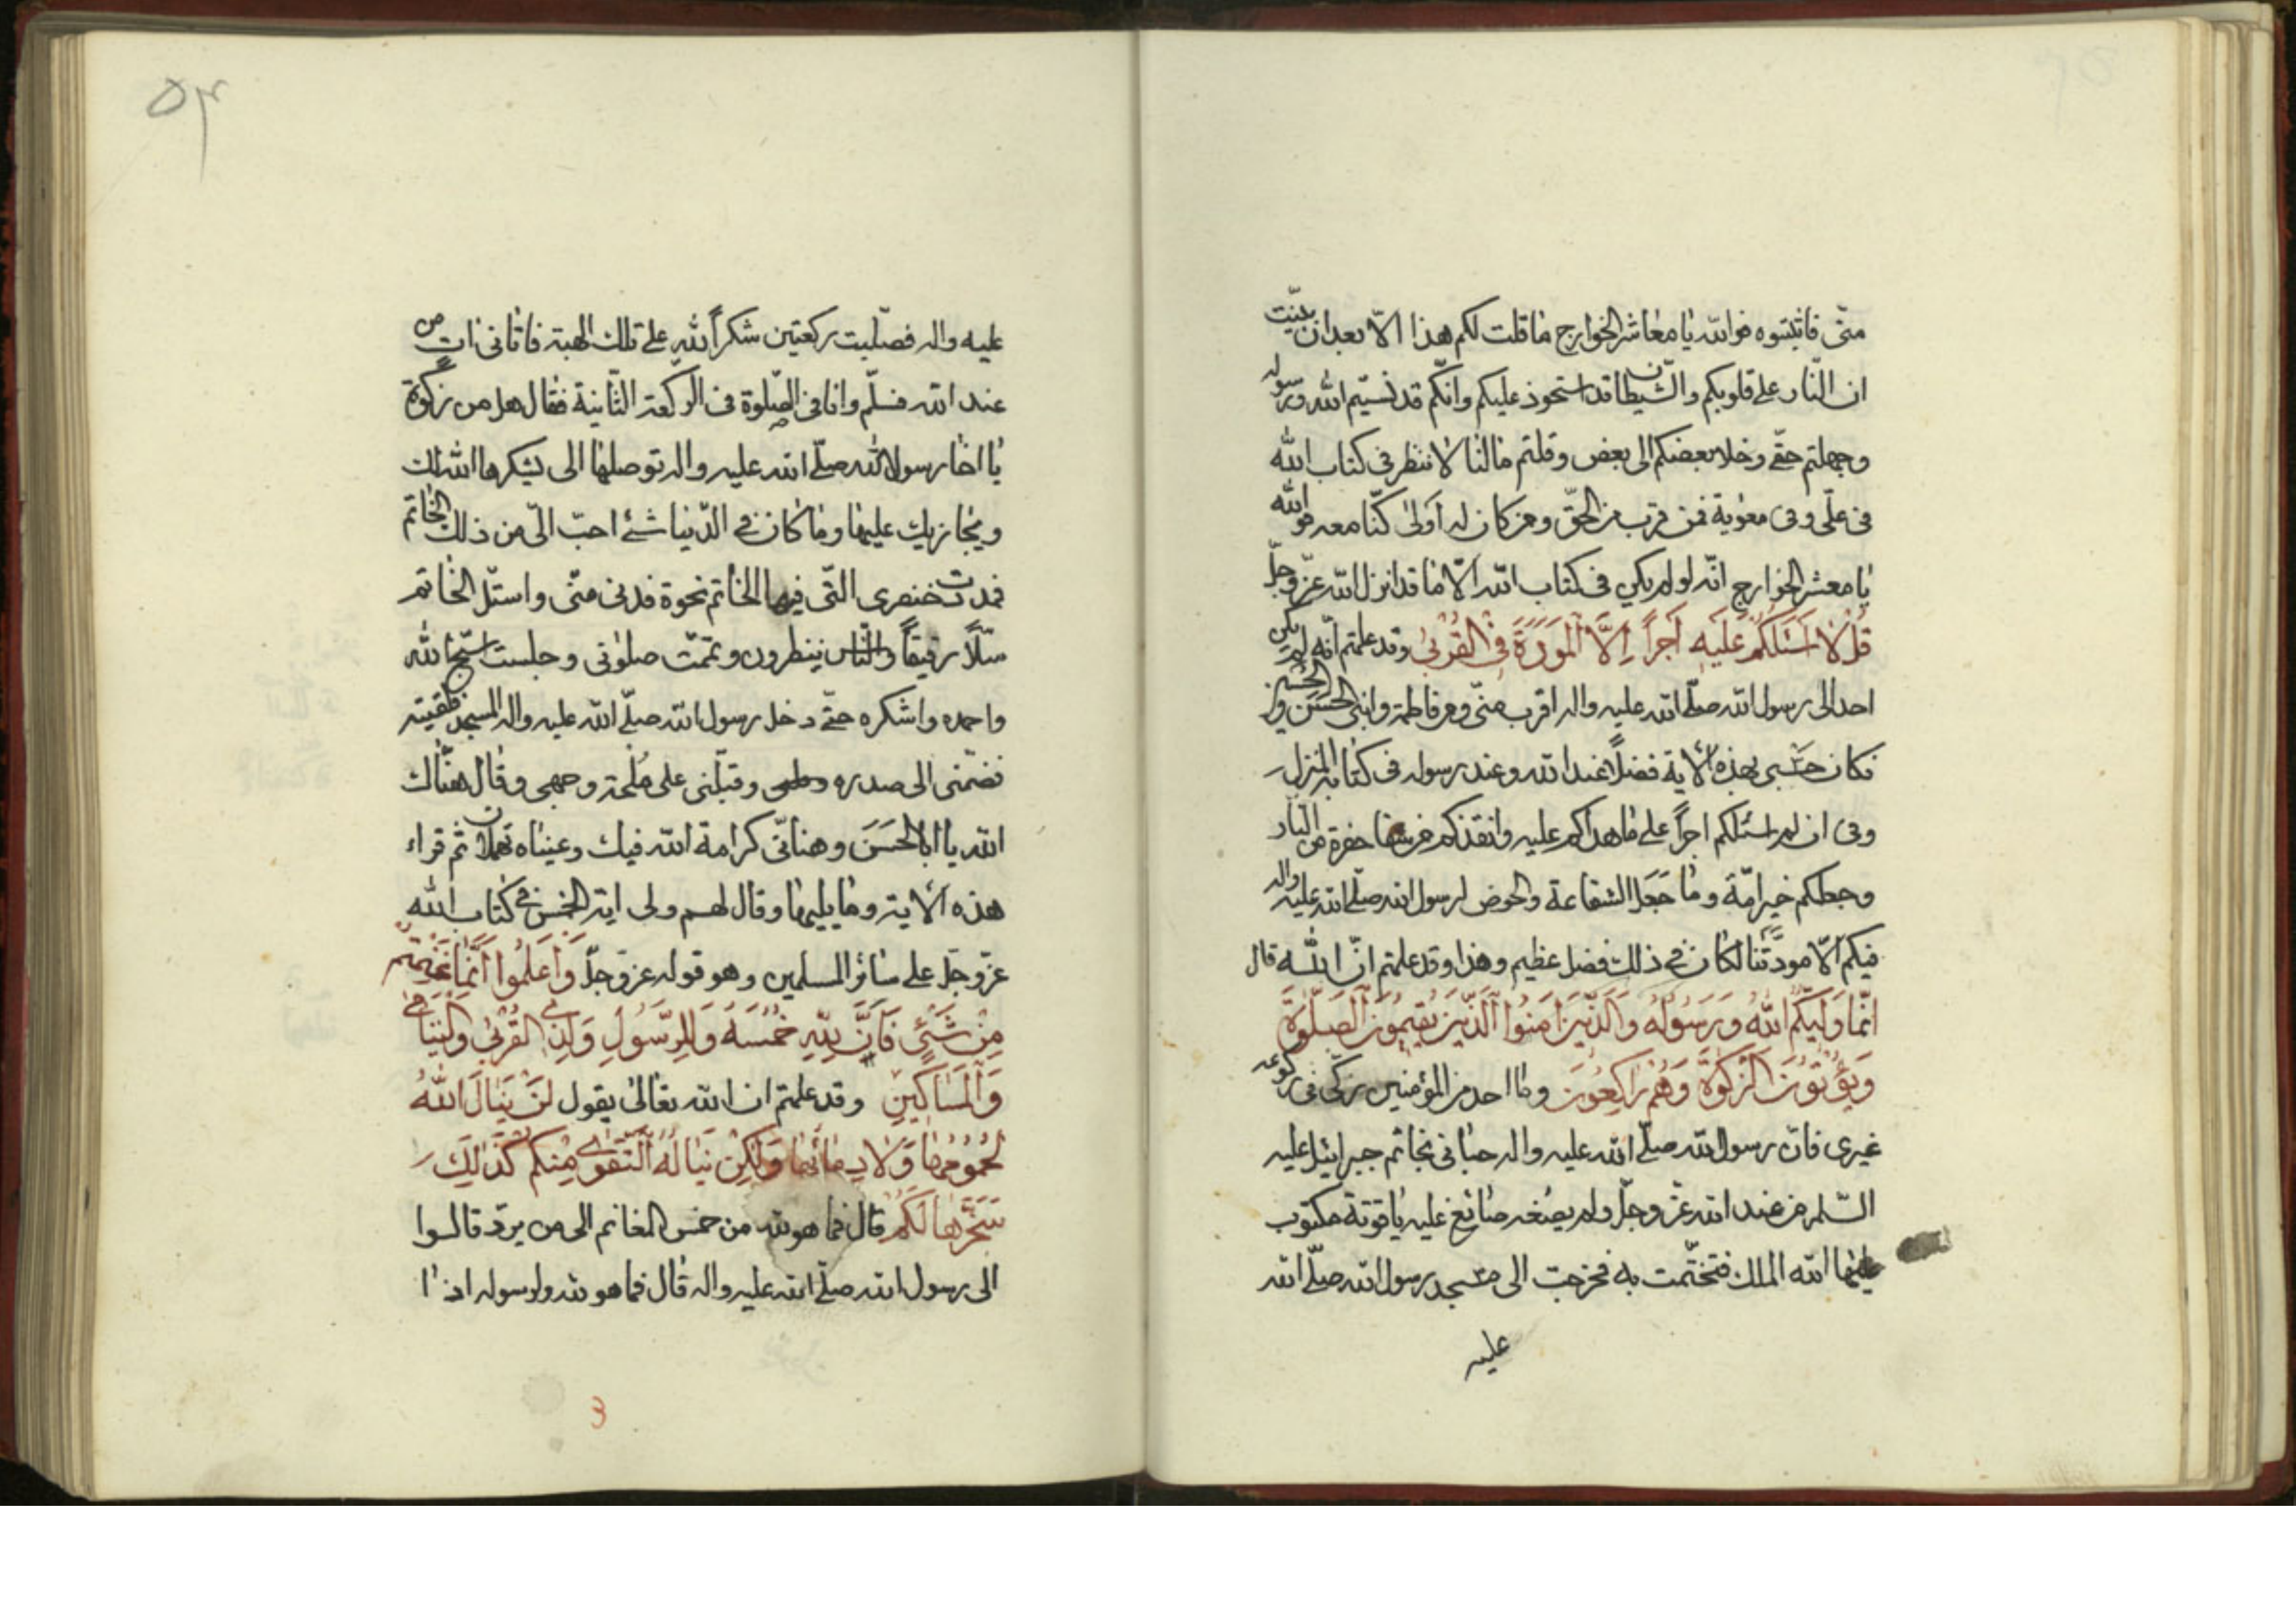 منّى فاثبتوه فوالله يا معاشر الخوارج ما قلت لكم هذا الّا بعد ان بيّنت
ان النّار على قلوبكم والشّيطان قد استحوذ عليكم وانّكم قد نسيتم الله ورسوله
وجهلتم حقّى وخلا بعضكم الى بعض وقلتم ما لنا لا ننظر فى كتاب الله
فى علّى وفى معوية فمن قرب من الحقّ ومن كان له اولى كنّا معه فوالله
يا معشر الخوارج انّه لو لم يكن فى كتاب الله الّا ما قد انزل الله عزّ وجلّ
قُلْ لا اَسْئَلُكُمْ عَلَيْهِ اَجراً اِلَّا الْمَوَدَّةَ فِى الْقُرْبىٰ وقد علمتم انّه لم يكن
احد الى رسول الله صلّى الله عليه واله اقرب منّى ومن فاطمة وابنى الحَسَن والحُسين
فكان حَسْبى بهذه الاية فضلاً عند الله وعند رسوله فى كتابه المنزل
وفى ان لم اسئلكم اجراً على ما هداكم عليه وانقذكم من شفا حفرة من النّار
وجعلكم خير امّة وما جَعَل الشفاعة والحوض لرسول الله صلّى الله عليه واله
فيكم الّا مودّتنا لكان فى ذلك فضل عظيم وهذا وقد علمتم انّ الله قال
انَّما وَلِيُّكُم اللهُ وَرَسُولُهُ وَالَّذينَ امَنُوا الَّذينَ يُقيمُونَ الصَّلوٰةَ
وَيُؤْتُونَ الزَّكوٰةَ وَهُمْ رَاكِعُونَ وما احد من المؤمنين زكّى فى ركوعه
غيرى فانّ رسول الله صلّى الله عليه واله حبانى بخاتم جبرائيل عليه
السّلم من عند الله عزّ وجلّ ولم يصُغه صائغ عليه ياقوتة مكتوب
عليها الله الملك فتختّمت به فخرجت الى مسجد رسول الله صلّى الله
عليه
۵۳
عليه واله فصلّيت ركعتين شكراً لله على تلك الهبة فاتانى ات من
عند الله فسلّم وانا فى الصّلوة فى الركعة الثّانية فقال هل من زكوة
يا اخا رسول الله صلّى الله عليه واله توصلها الى يشكرها الله لك
ويجازيك عليها وما كان فى الدّنيا شئ احبّ الىّ من ذلك الخاتم
فمدت خنصرى التّى فيها الخاتم نحوة فدنى منّى واستلّ الخاتم
سلّاً رقيقاً والنّاس ينظرون وتممّت صلوتى وجلست اسبّح الله
واحمده واشكره حتّى دخل رسول الله صلّى الله عليه واله المسجد فلقيته
فضمّنى الى صدره وقبّلنى على وجهى وقال هنّاك
الله يا ابا الحَسَن وهنانى كرامة الله فيك وعيناه تهملان ثم قراء
هذه الاية وما يليها وقال لهم ولى اية الخمس فى كتاب الله
عزّ وجلّ على سائر المسلمين وهو قوله عزّ وجلّ وَاعلَمُوا اَنَّما غَنِمتُم
مِنْ شَىْءٍ فَاَنَّ لِلّٰهِ خُمُسَهُ وَلِلرَّسُولِ وَلِذِى القُرْبىٰ وَاليَتَامىٰ
وَالْمَسَاكِينِ وقد علمتم ان الله تعالى يقول لَنْ يَنَالَ اللهُ
لُحُومُهَا وَلَا دِمَائُهَا وَلٰكِنْ يَنَالُهُ التَّقْوىٰ مِنكُم كَذٰلِكَ
سَخَّرَها لَكُمْ قال فما هو لله من خمس المغانم الى من يردّ قالوا
الى رسول الله صلّى الله عليه واله قال فما هو لله ولرسوله اذا